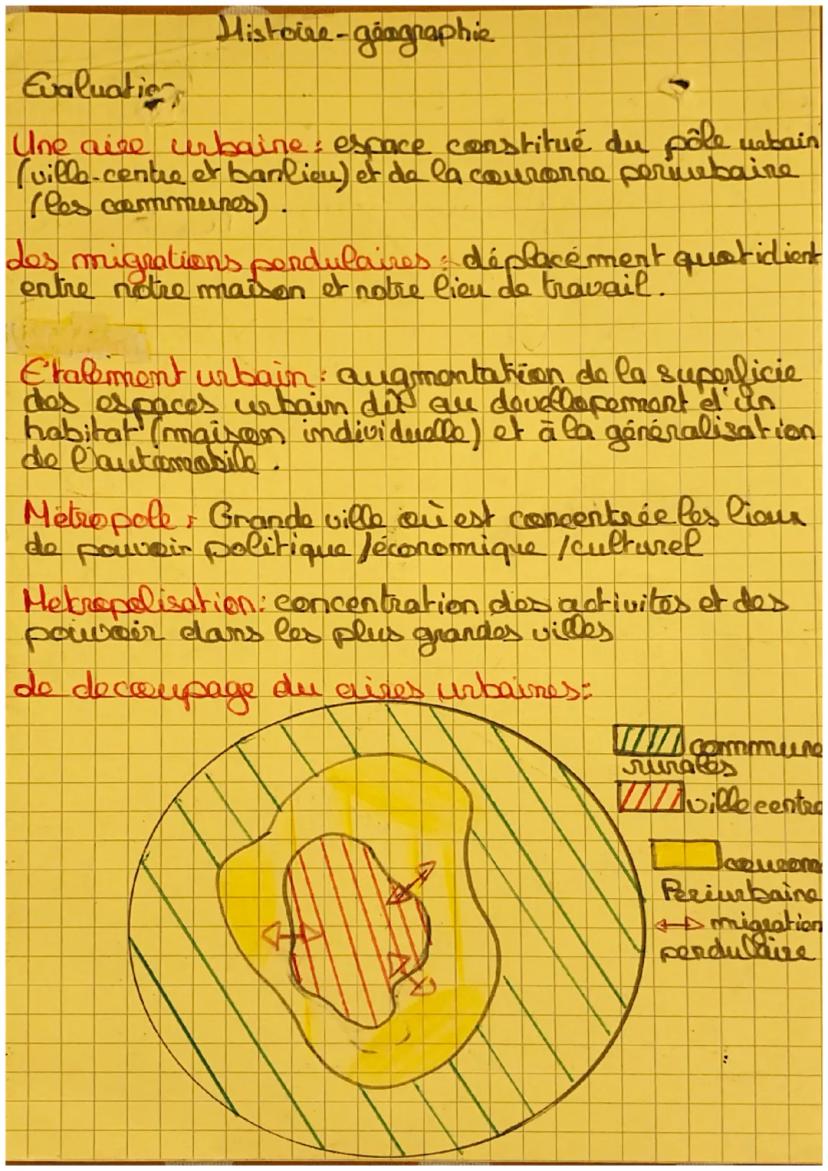 Histoire-géographie
Evaluation
Une aire urbaine : espace constitué du pôle urbain
(ville-centre et banlieu) et de la couronne periurbaine
(les communes).
Les migrations pendulaires : déplacément quotidient
entre notre maison et notre lieu de travail.
Etalement urbain : augmentation de la superficie
des espaces urbain dû au devellopement d'un
habitat (maison individuelle) et à la généralisation
de l'automobile.
Métropole : Grande ville où est concentrée les lieux
de pouvoir politique /économique /culturel
Metropolisation : concentration des activités et des
pouvoir dans les plus grandes villes
Le decoupage du aires urbaines :
commune
rurales
ville centre
couronn
Periurbaine
migration
pendulaire